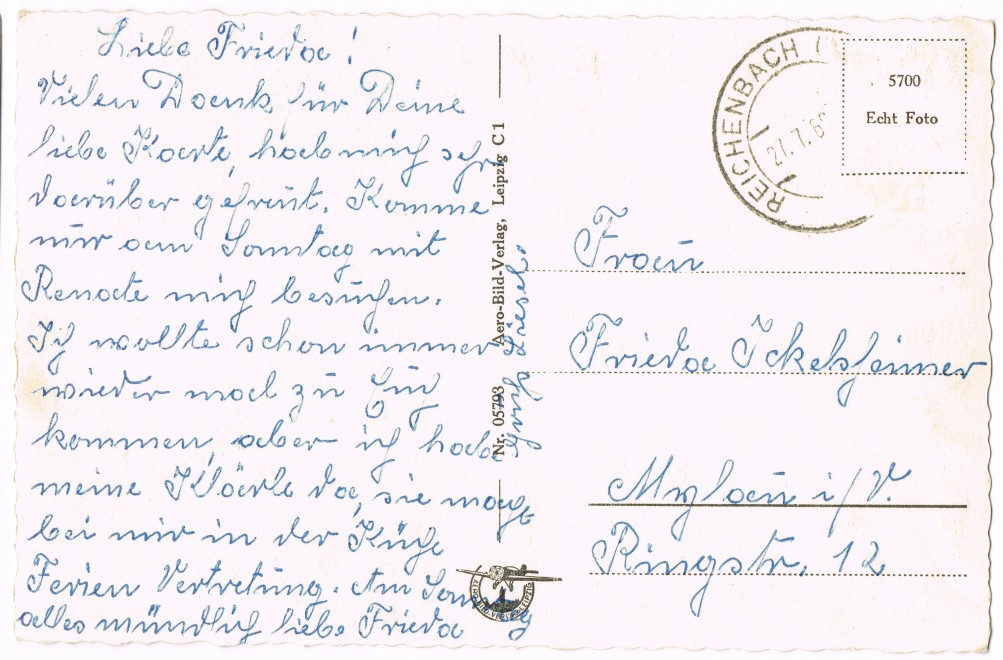 Liebe Frieda!
Vielen Dank für Deine
liebe Karte, hab mich sehr
darüber gefreut. Komme
nur am Sonntag mit
Renate mich besuchen.
Ich wollte schon immer
wieder mal zu Euch
kommen, aber ich habe
meine Klärle da, sie macht
bei mir in der Küche
Ferien Vertretung. Am Sonntag
alles mündlich liebe Frieda
Liesel.
Nr. 05793 Aero-Bild-Verlag, Leipzig C 1
AERO-BILD-VERLAG LEIPZIG
REICHENBACH (
27.7.6
5700
Echt Foto
Frau
Frieda Ickelsheimer
Mylau i/V.
Ringstr. 12